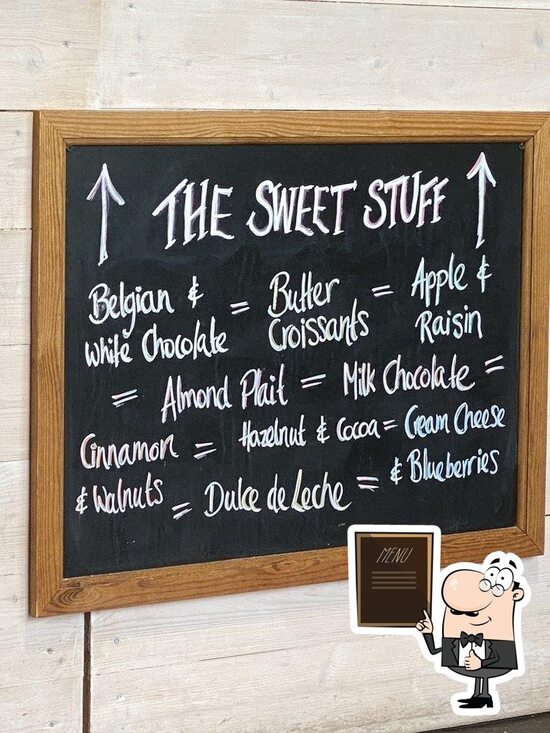 THE SWEET STUFF
Belgian & = Butter = Apple &
White Chocolate Croissants Raisin
= Almond Plait = Milk Chocolate =
Cinnamon = Hazelnut & Cocoa = Cream Cheese
& Walnuts = Dulce de Leche = & Blueberries
MENU